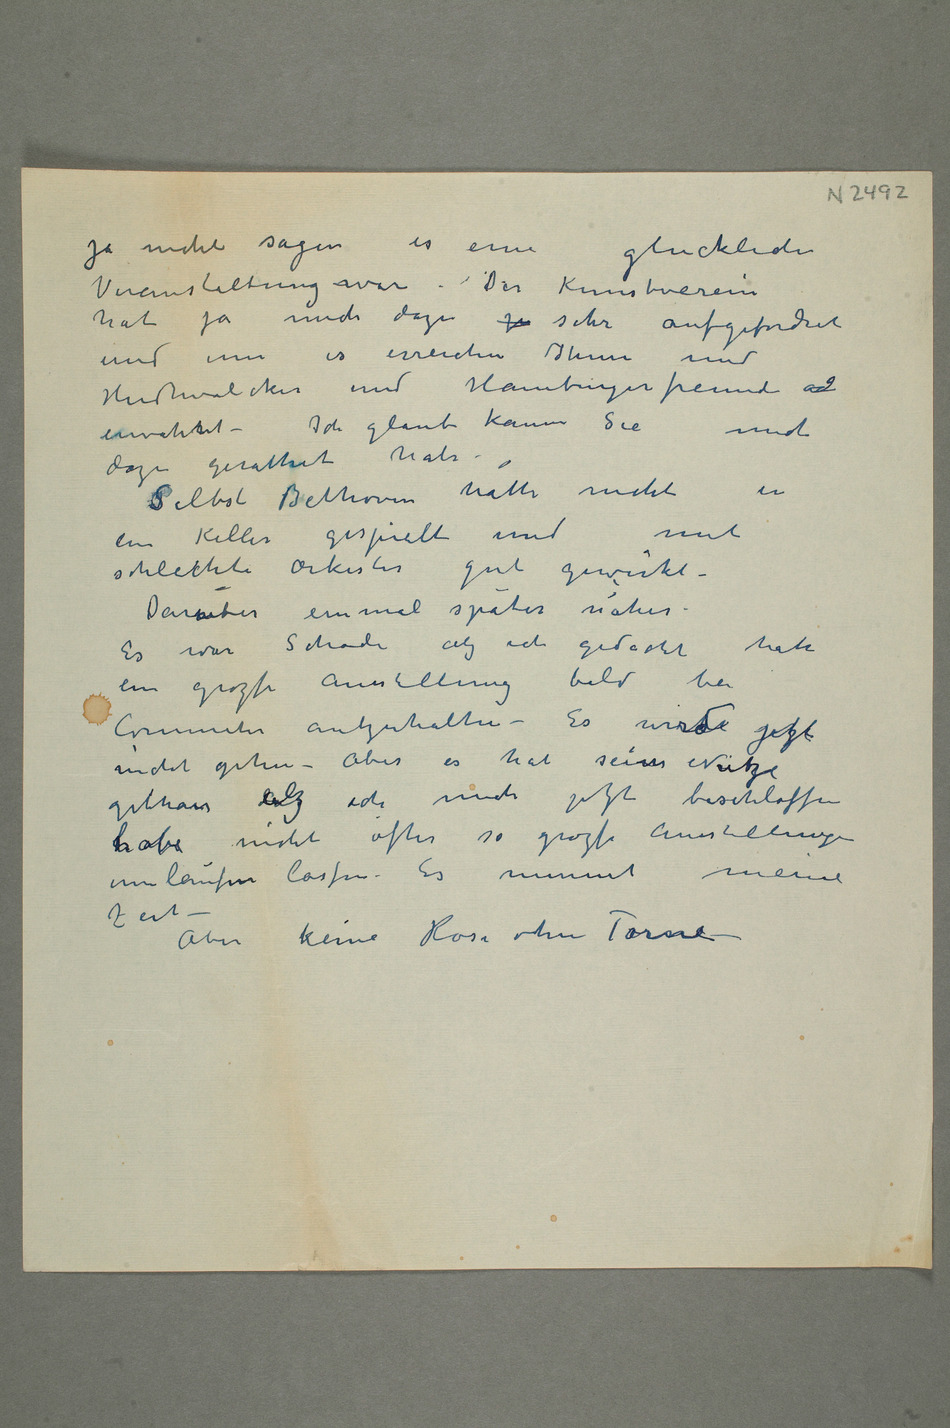 N 2492
ja nicht sagen es eine glückliche
Veranstaltung war – Der Kunstverein
hat ja mich dazu sehr aufgefordret
und um es erreichen Ihnen und
Hudtwalcker und Hamburgerfreunde
erwähnt – Ich glaube kaum Sie mich
dazu gerathet habe –
Selbst Bethoven hätte nicht in
ein Keller gespielt und mit
schlechte Orkester gut gewirkt –
Darüber einmal später näher –
Es war Schade alz ich gedacht hatte
ein grozse Ausstellung bald bei
Commeter abzuhalten – Es wirde jetzt
nicht gehen – Aber es hat seine Nütze
gethan alz ich mich jetzt beschloffen
habe nicht öfter so grozse Ausstellungen
umlaufen lassen – Es nimmt meine
Zeit –
Aber keine Rose ohne Torne –